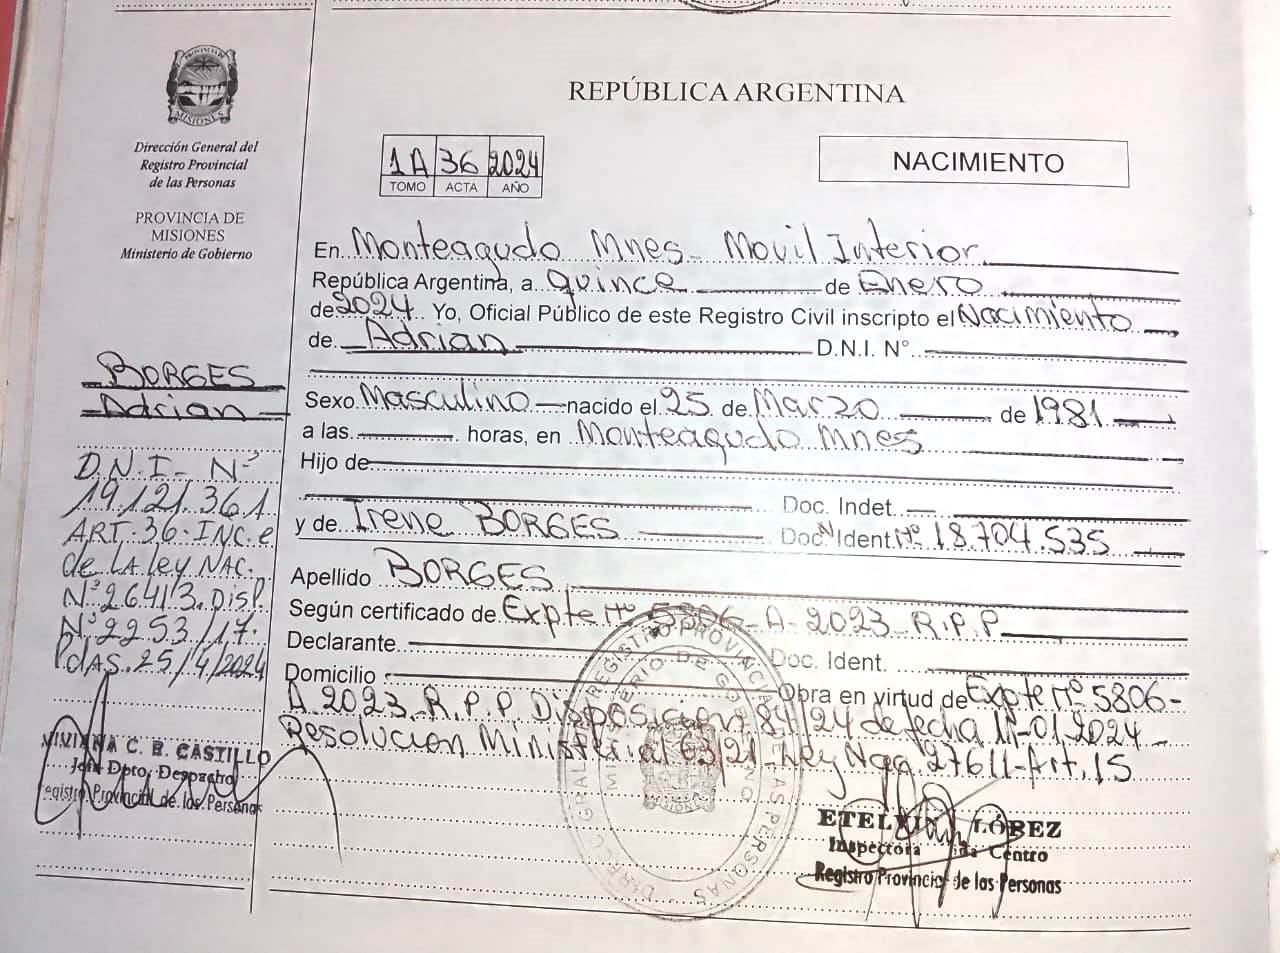 PROVINCIA DE
MISIONES
Dirección General del
Registro Provincial
de las Personas
PROVINCIA DE
MISIONES
Ministerio de Gobierno
BORGES
Adrian
D.N.I- Nº
19.121.361
ART.36.INC.e
de LA Ley NAC.
Nº26413.Disp.
Nº2253/17.
PdAS.25/4/2024
VIVIANA C. B. CASTILLO
Jefa Dpto. Despacho
Registro Provincial de las Personas
REPÚBLICA ARGENTINA
1A 36 2024
TOMO ACTA AÑO
NACIMIENTO
En Monteagudo Mnes- Movil Interior
República Argentina, a quince de Enero
de 2024 Yo, Oficial Público de este Registro Civil inscripto el Nacimiento
de Adrian D.N.I. N°
Sexo Masculino nacido el 25 de Marzo de 1981
a las horas, en Monteagudo Mnes
Hijo de
Doc. Indet.
y de Irene BORGES Doc. Ident. Nº 18.704.535
Apellido BORGES
Según certificado de Expte Nº 5806-A-2023-R.P.P
Declarante Doc. Ident.
Domicilio Obra en virtud de Expte nº 5806-
A 2023-R.P.P Disposicion 84/24 de fecha 11-01.2024-
Resolucion Ministerial 63/21-Ley 27611-Art.15
LÓPEZ
Inspectora Centro
Registro Provincial de las Personas